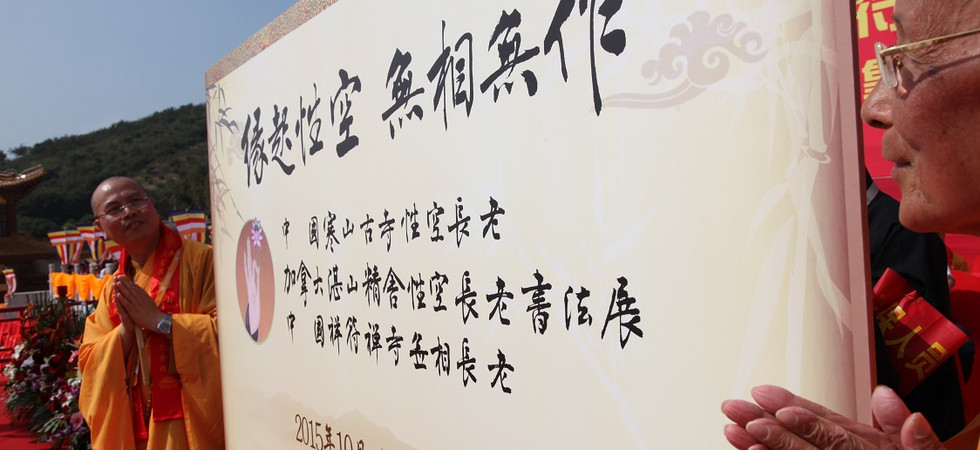 缘起性空 無相無作
中国寒山古寺性空長老
加拿大湛山精舍性空長老書法展
中国祥符禅寺無相長老
2015年10